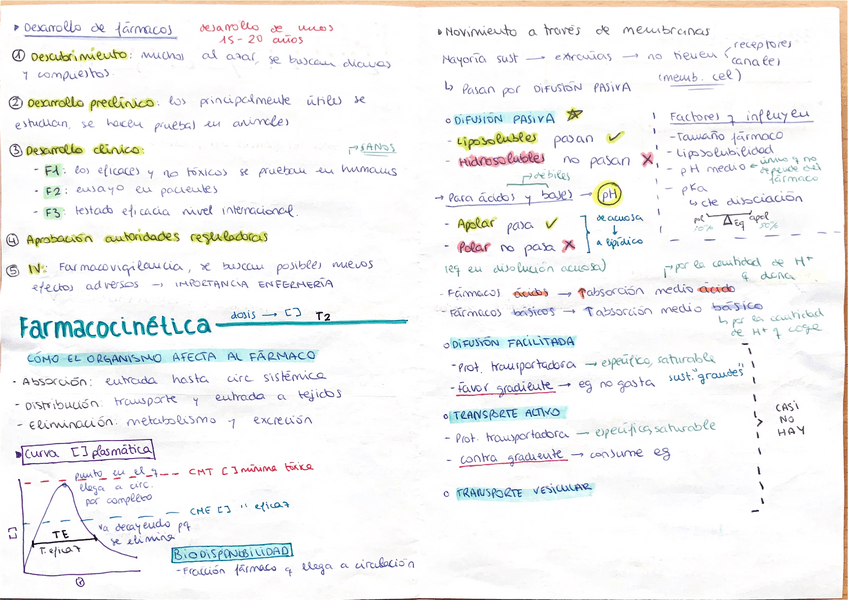 ▸ Desarrollo de fármacos
desarrollo de unos
15-20 años
① Descubrimiento: muchos al azar, se buscan dianas
y compuestos.
② Desarrollo preclínico: los principalmente útiles se
estudian, se hacen pruebas en animales
③ Desarrollo clínico:
- F1: los eficaces y no tóxicos se prueban en humanos
→ SANOS
- F2: ensayo en pacientes
- F3: testado eficacia nivel internacional.
④ Aprobación autoridades reguladoras
⑤ IV: Farmacovigilancia, se buscan posibles nuevos
efectos adversos → IMPORTANCIA ENFERMERÍA
Farmacocinética
dosis → [] T2
CÓMO EL ORGANISMO AFECTA AL FÁRMACO
- Absorción: entrada hasta circ sistémica
- Distribución: transporte y entrada a tejidos
- Eliminación: metabolismo y excreción
▸ Curva [] plasmática
punto en el q
llega a circ.
por completo
CMT [] mínima tóxica
CME [] " eficaz
va decayendo pq
se elimina
TE
T. eficaz
[]
BIODISPONIBILIDAD
- Fracción fármaco q llega a circulación
▸ Movimiento a través de membranas
Mayoría sust → extrañas → no tienen
receptores
canales
(memb. cel)
↳ Pasan por DIFUSIÓN PASIVA
○ DIFUSIÓN PASIVA ☆
- Liposolubles pasan ✓
- Hidrosolubles no pasan ✗
→ débiles
→ Para ácidos y bases → pH
- Apolar pasa ✓
- Polar no pasa ✗
de acuosa
↓
a lipídico
(eq en disolución acuosa)
Factores q influyen
- Tamaño fármaco
- Liposolubilidad
- pH medio ← único q no
depende del
fármaco
- pKa
↳ cte disociación
pol Δ Eq apol
50% 50%
→ por la cantidad de H+
q dona
- Fármacos ácidos → ↑ absorción medio ácido
- Fármacos básicos → ↑ absorción medio básico
↳ por la cantidad
de H+ q coge
○ DIFUSIÓN FACILITADA
- Prot. transportadora → específico, saturable
- Favor gradiente → eg no gasta sust. "grandes"
○ TRANSPORTE ACTIVO
- Prot. transportadora → específica, saturable
- contra gradiente → consume eg
○ TRANSPORTE VESICULAR
CASI
NO
HAY